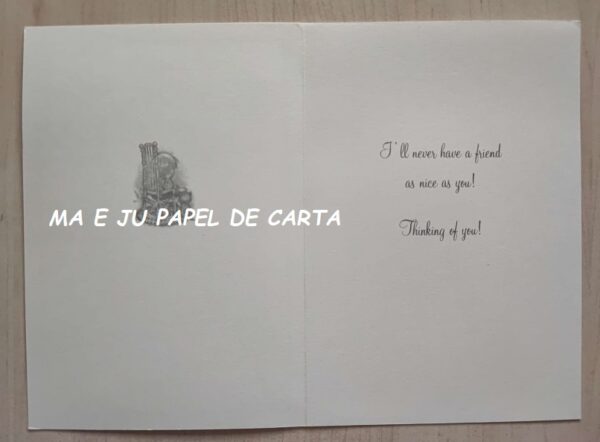 MA E JU PAPEL DE CARTA
I'll never have a friend
as nice as you!
Thinking of you!